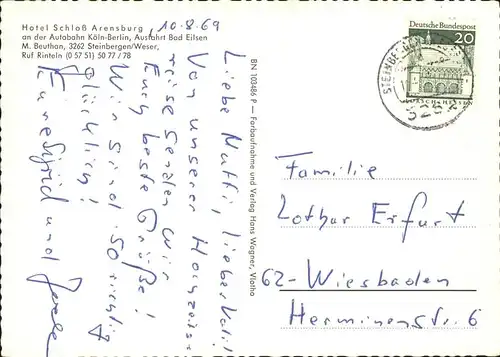 Hotel Schloß Arensburg
an der Autobahn Köln-Berlin, Ausfahrt Bad Eilsen
M. Beuthan, 3262 Steinbergen/Weser,
Ruf Rinteln (0 57 51) 50 77 / 78
10.8.69
Liebe Mutti, lieber Vati!
Von unserer Hochzeits-
reise senden wir
Euch beste Grüße!
Wir sind so richtig
glücklich!
Eure Sigrid und
BN 103486 P – Farbaufnahme und Verlag Hans Wagner, Vlotho
Deutsche Bundespost
20
LORSCH/HESSEN
Familie
Lothar Erfurt
62-Wiesbaden
Hermannstr. 6